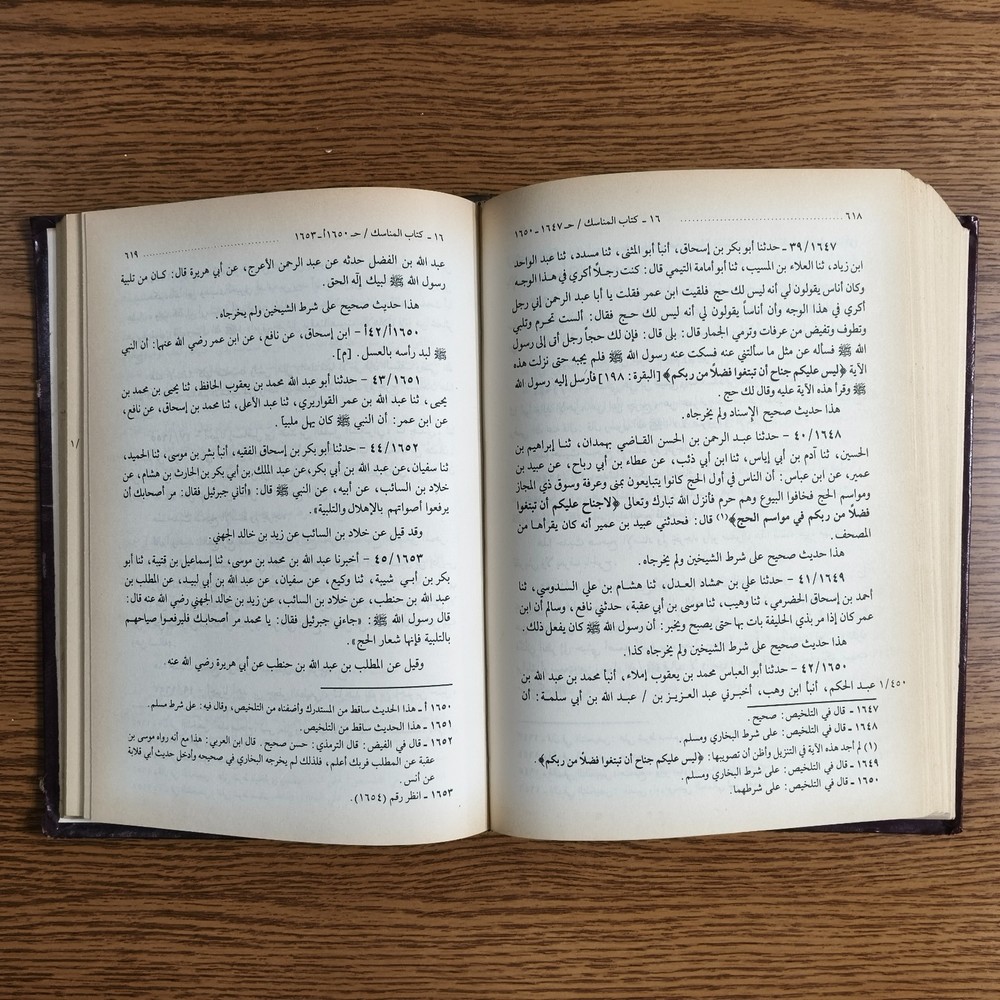 ٦١٨ ........................ ١٦ ـ كتاب المناسك / حـ ١٦٤٧ـ١٦٥٠
٣٩/١٦٤٧ ـ حدثنا أبو بكر بن إسحاق، أنبأ أبو المثنى، ثنا مسدد، ثنا عبد الواحد
ابن زياد، ثنا العلاء بن المسيب، ثنا أبو أمامة التيمي قال: كنت رجـلاً أكري في هـذا الوجـه
وكان أناس يقولون لي أنه ليس لك حج فلقيت ابن عمر فقلت يا أبا عبد الرحمن إني رجل
أكري في هذا الوجه وأن أناساً يقولون لي أنه ليس لك حـج فقال: ألست تحـرم وتلبي
وتطوف وتفيض من عرفات وترمي الجمار قال: بلى قال: فإن لك حجاً رجل أتى إلى رسول
الله ﷺ فسأله عن مثل ما سألتني عنه فسكت عنه رسول الله ﷺ فلم يجبه حتى نزلت هذه
الآية ﴿ليس عليكم جناح أن تبتغوا فضلاً من ربكم﴾ [البقرة: ١٩٨] فأرسل إليه رسول الله
ﷺ وقرأ هذه الآية عليه وقال لك حج.
هذا حديث صحيح الإسناد ولم يخرجاه.
٤٠/١٦٤٨ ـ حدثنا عبـد الرحمن بن الحسن القـاضي بهمدان، ثنـا إبراهيم بن
الحسين، ثنا آدم بن أبي إياس، ثنا ابن أبي ذئب، عن عطاء بن أبي رباح، عن عبيد بن
عمير، عن ابن عباس: أن الناس في أول الحج كانوا يتبايعون بمنى وعرفة وسوق ذي المجاز
ومواسم الحج فخافوا البيوع وهم حرم فأنزل الله تبارك وتعالى ﴿لاجناح عليكم أن تبتغوا
فضلاً من ربكم في مواسم الحج﴾(١) قال: فحدثني عبيد بن عمير أنه كان يقرأهـا من
المصحف.
هذا حديث صحيح على شرط الشيخين ولم يخرجاه.
٤١/١٦٤٩ ـ حدثنا علي بن حمشاد العـدل، ثنا هشـام بن علي السـدوسي، ثنا
أحمد بن إسحاق الحضرمي، ثنا وهيب، ثنا موسى بن أبي عقبة، حدثني نافع، وسالم أن ابن
عمر كان إذا مر بذي الحليفة بات بها حتى يصبح ويخبر: أن رسول الله ﷺ كان يفعل ذلك.
هذا حديث صحيح على شرط الشيخين ولم يخرجاه كذا.
٤٢/١٦٥٠ ـ حدثنا أبو العباس محمد بن يعقوب إملاء، أنبأ محمد بن عبد الله بن
١/٤٥٠ عبـد الحكم، أنبأ ابن وهب، أخبـرني عبد العـزيـز بن / عبـد الله بن أبي سلمـة: أن
١٦٤٧ ـ قال في التلخيص: صحيح.
١٦٤٨ ـ قال في التلخيص: على شرط البخاري ومسلم.
(١) لم أجد هذه الآية في التنزيل وأظن أن تصويبها: ﴿ليس عليكم جناح أن تبتغوا فضلاً من ربكم﴾.
١٦٤٩ ـ قال في التلخيص: على شرط البخاري ومسلم.
١٦٥٠ ـ قال في التلخيص: على شرطهما.
١٦ ـ كتاب المناسك / حـ ١٦٥٠أ ـ ١٦٥٣ ........................ ٦١٩
عبد الله بن الفضل حدثه عن عبد الرحمن الأعرج، عن أبي هريرة قال: كـان من تلبية
رسول الله ﷺ لبيك إلٓه الحق.
هذا حديث صحيح على شرط الشيخين ولم يخرجاه.
١٦٥٠أ/٤٢أ ـ ابن إسحاق، عن نافع، عن ابن عمر رضي الله عنهما: أن النبي
ﷺ لبد رأسه بالعسل. [م].
٤٣/١٦٥١ ـ حدثنا أبو عبد الله محمد بن يعقوب الحافظ، ثنا يحيى بن محمد بن
يحيى، ثنا عبد الله بن عمر القواريري، ثنا عبد الأعلى، ثنا محمد بن إسحاق، عن نافع،
عن ابن عمر: أن النبي ﷺ كان يهل ملبياً.
٤٤/١٦٥٢ ـ حدثنا أبو بكر بن إسحاق الفقيه، أنبأ بشر بن موسى، ثنا الحميد،
ثنا سفيان، عن عبد الله بن أبي بكر، عن عبد الملك بن أبي بكر بن الحارث بن هشام، عن
خلاد بن السائب، عن أبيه، عن النبي ﷺ قال: «أتاني جبرئيل فقال: مر أصحابك أن
يرفعوا أصواتهم بالإهلال والتلبية».
وقد قيل عن خلاد بن السائب عن زيد بن خالد الجهني.
٤٥/١٦٥٣ ـ أخبرنا عبد الله بن محمد بن موسى، ثنا إسماعيل بن قتيبة، ثنا أبو
بكر بن أبـي شيبة، ثنا وكيع، عن سفيان، عن عبد الله بن أبي لبيـد، عن المطلب بن
عبد الله بن حنطب، عن خلاد بن السائب، عن زيد بن خالد الجهني رضي الله عنه قال:
قال رسول الله ﷺ: «جاءني جبرئيل فقال: يا محمد مر أصحابـك فليرفعـوا صياحهـم
بالتلبية فإنها شعار الحج».
وقيل عن المطلب بن عبد الله بن حنطب عن أبي هريرة رضي الله عنه.
١٦٥٠ أ ـ هذا الحديث ساقط من المستدرك وأضفناه من التلخيص، وقال فيه: على شرط مسلم.
١٦٥١ ـ هذا الحديث ساقط من التلخيص.
١٦٥٢ ـ قال في الفيض: قال الترمذي: حسن صحيح. قال ابن العربي: هذا مع أنه رواه موسى بن
عقبة عن المطلب فربك أعلم، فلذلك لم يخرجه البخاري في صحيحه وأدخل حديث أبي قلابة
عن أنس.
١٦٥٣ ـ انظر رقم (١٦٥٤).